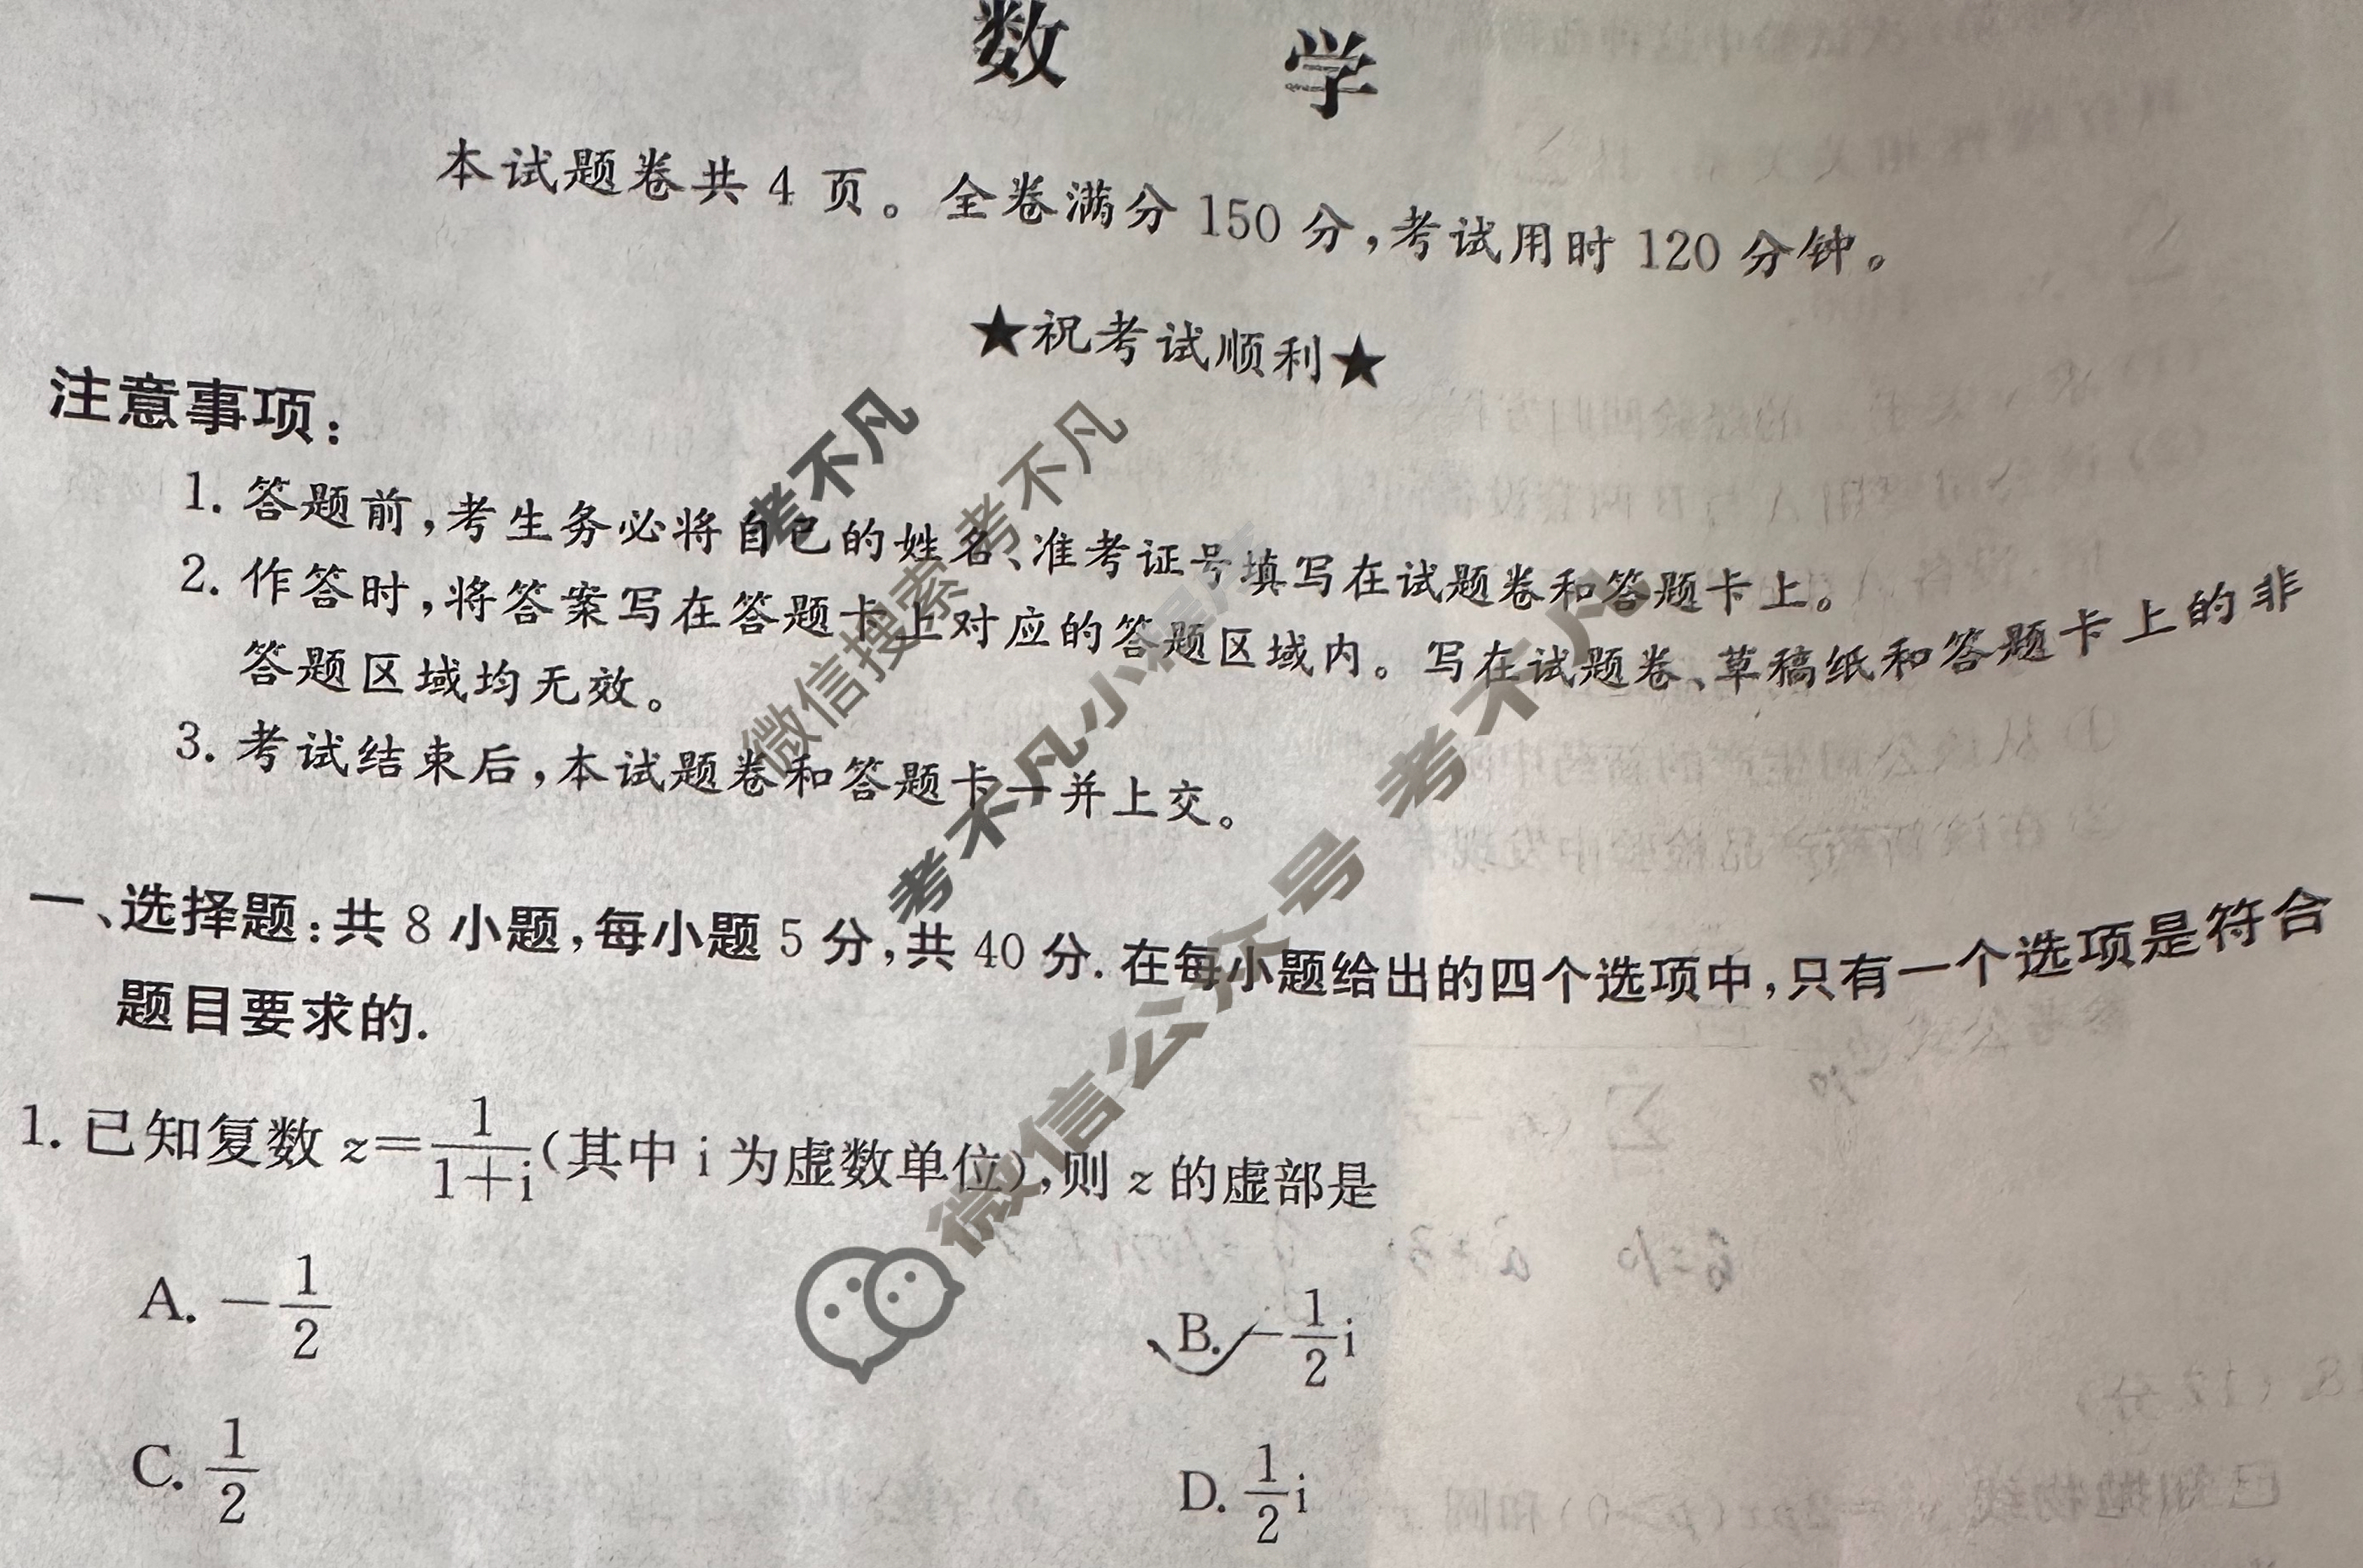 数 学
本试题卷共 4 页。全卷满分 150 分,考试用时 120 分钟。
★祝考试顺利★
注意事项:
1. 答题前,考生务必将自己的姓名、准考证号填写在试题卷和答题卡上。
2. 作答时,将答案写在答题卡上对应的答题区域内。写在试题卷、草稿纸和答题卡上的非
答题区域均无效。
3. 考试结束后,本试题卷和答题卡一并上交。
一、选择题:共 8 小题,每小题 5 分,共 40 分. 在每小题给出的四个选项中,只有一个选项是符合
题目要求的.
1. 已知复数 z=1/(1+i)(其中 i 为虚数单位),则 z 的虚部是
A. -1/2
B. -1/2 i
C. 1/2
D. 1/2 i
考不凡
微信搜索 考不凡
考不凡小程序
微信公众号 考不凡